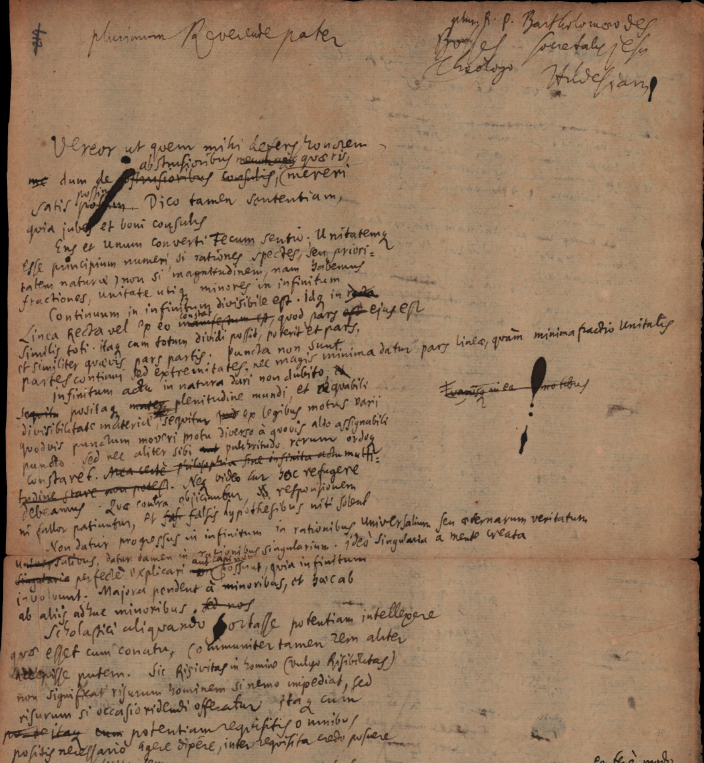 plurimum Reverende pater
R. P. Bartholomaeo des
Bosses Societatis jesu
Theologo Hildesiam
Vereor ut quem mihi defers honorem
abstrusioribus quaeris,
me dum de abstrusioribus consulis, mereri
satis possim
possum. Dico tamen sententiam,
quia jubes et boni consulis
Ens et Unum converti Tecum sentio. Unitatemq
Esse principium numeri si rationes spectes, seu priori-
tatem naturae, non si magnitudinem, nam habemus
fractiones, unitate utiq minores in infinitum
Continuum in infinitum divisibile est. Idq in
Linea Recta vel ex eo constat quod pars est ejus est
similis toti. itaq cum totum dividi possit, poterit et pars,
et similiter quaevis pars partis. puncta non sunt
partes continui sed extremitates, nec magis minima datur pars lineae, quam minima fractio Unitatis
Infinitum actu in natura dari non dubito,
positaq plenitudine mundi, et aequabili
divisibilitate materiae, sequitur ex legibus motus varii
quodvis punctum moveri motu diverso à quovis alio assignabili
puncto. Sed nec aliter sibi pulchritudo rerum ordoq
constaret. Nec video cur hoc refugere
debeamus. Quae contra objiciuntur, responsionem
ni fallor patiuntur, et falsis hypothesibus niti solent
Non datur progressus in infinitum in rationibus Universalium seu aeternarum veritatum
datur tamen in rationibus singularium. ideo singularia à mente creata
perfecte explicari non possunt, quia infinitum
involvunt. Majora pendent à minoribus, et haec ab
ab aliis adhuc minoribus.
Scholastici aliquando fortasse potentiam intellexere
quae esset cum conatu, Communiter tamen rem aliter
cepisse putem. Sic Risivitas in homine (vulgo Risibilitas)
non significat risurum hominem si nemo impediat, sed
risurum si occasio ridendi offeratur itaq cum
potentiam requisitis omnibus
positis necessario agere dixere, inter requisita credo posuere